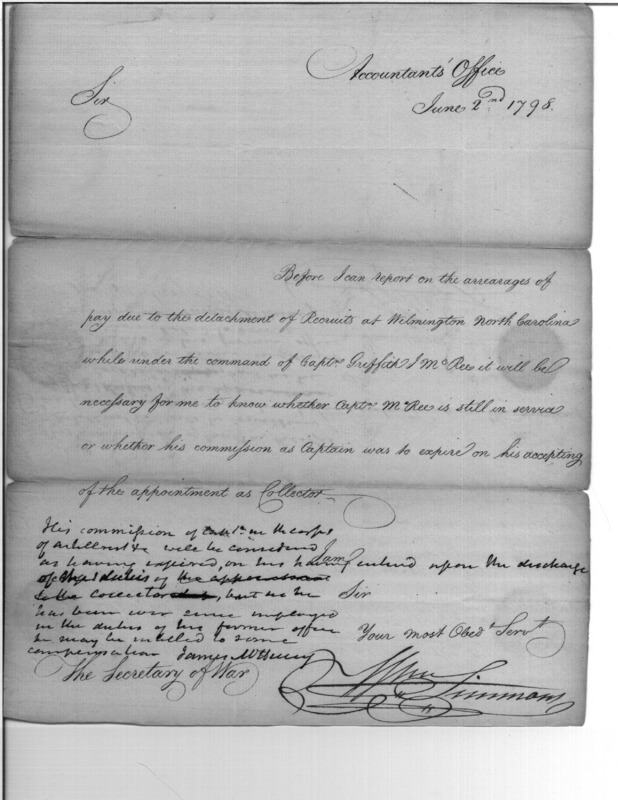 Accountants' Office
June 2nd 1798.
Sir
Before I can report on the arrearages of
pay due to the detachment of Recruits at Wilmington North Carolina
while under the command of Captn. Griffith J McRee it will be
necessary for me to know whether Captn. McRee is still in service
or whether his commission as Captain was to expire on his accepting
of the appointment as Collector.
His commission of Captn. in the corps
of artillerists &c will be considered
as having expired, on his having entered upon the discharge
of the duties of the
Collector, but as he
has been ever since employed
in the duties of his former office
he may be entitled to some
compensation James McHenry
I am
Sir
Your most Obedt. Servt.
Wm Simmons
The Secretary of War